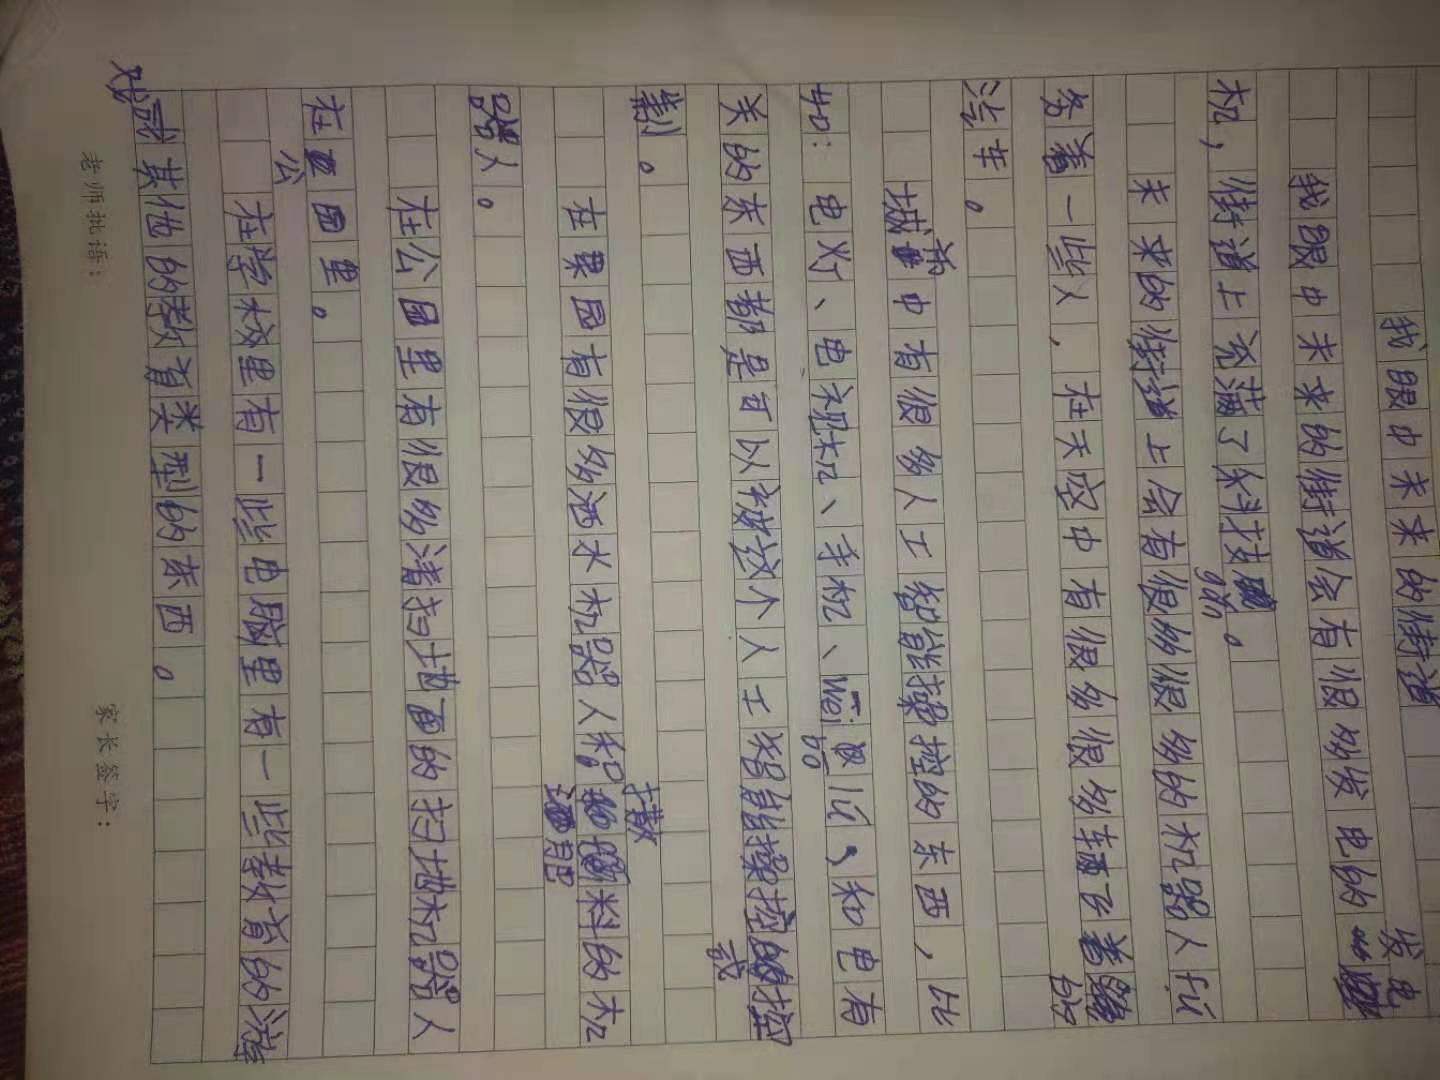 我眼中未来的街道
我眼中未来的街道会有很多发电的发电
机，街道上充满了科技gǎn。
未来的街道上会有很多很多的机器人fú
务着一些人，在天空中有很多很多车飞着的
汽车。
城市中有很多人工智能操控的东西，比
如：电灯、电视机、手机、wēi bō lú、和电有
关的东西都是可以被这个人工智能操控或控
制。
在果园有很多洒水机器人和撒肥料的机
器人。
在公园里有很多清扫地面的扫地机器人
在公园里。
在学校里有一些电脑里有一些教育的游
戏或其他的教育类型的东西。
老师批语：
家长签字：